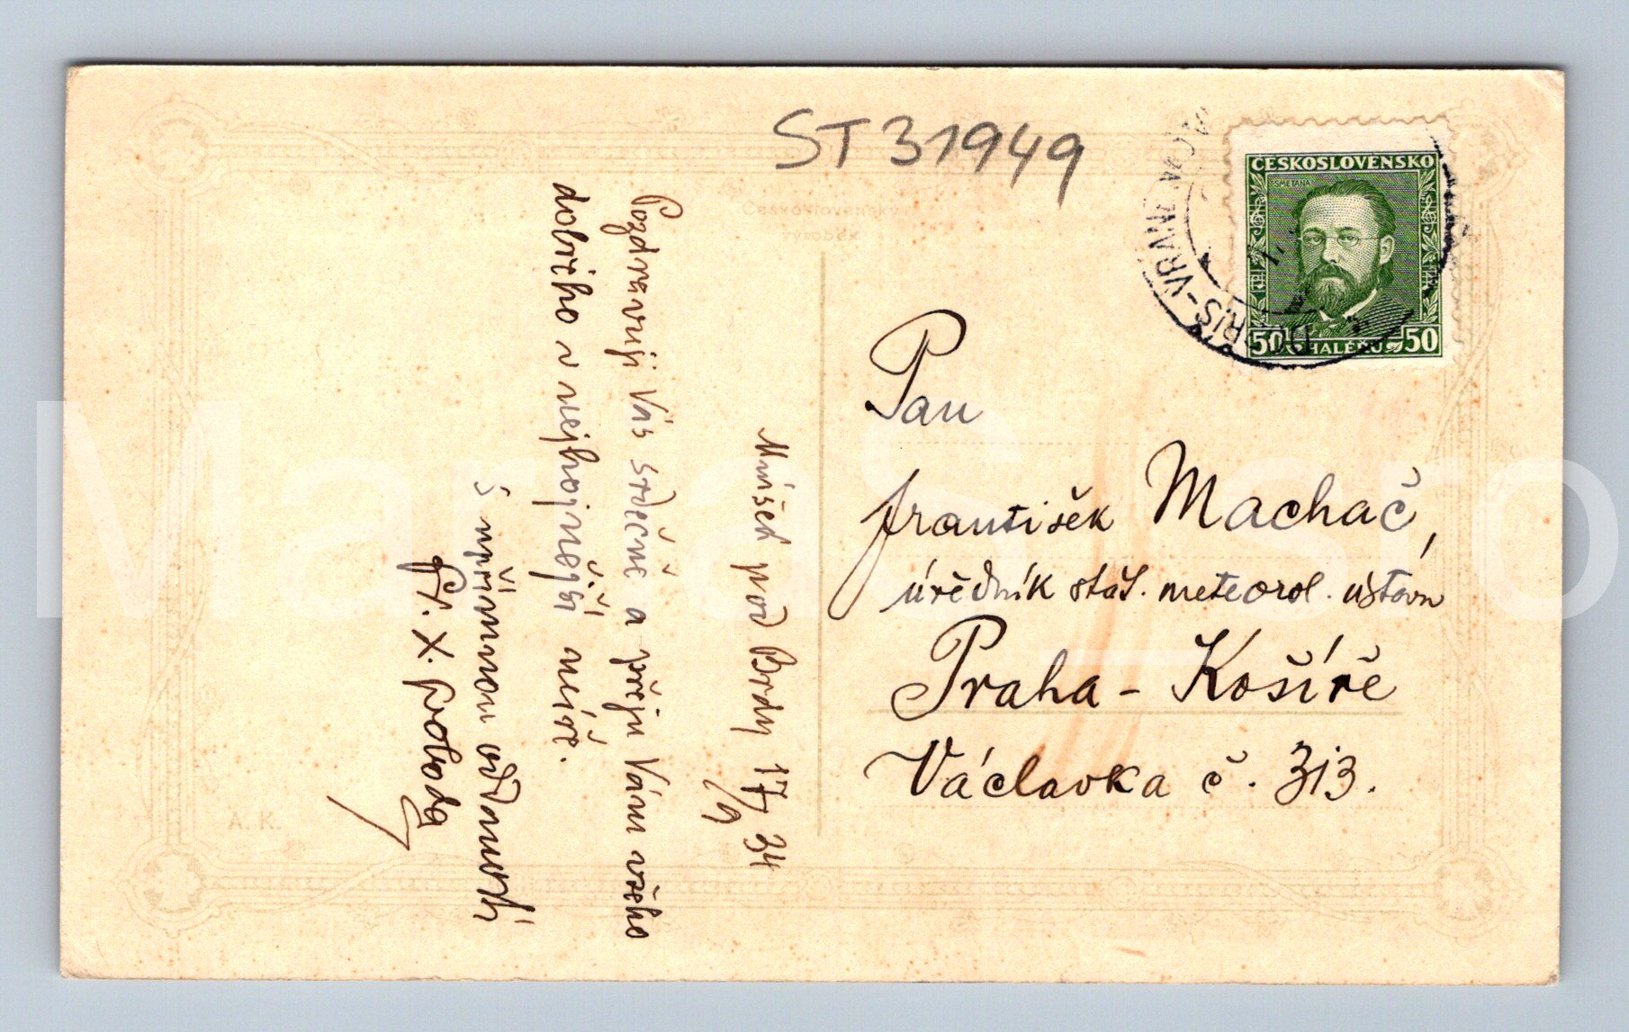 ST 31949
ČESKOSLOVENSKO
SMETANA
50 HALÉŘŮ 50
DOBŘÍŠ-VRAN
Mníšek pod Brdy 17/9 34
Pozdravuji Vás srdečně a přeji Vám všeho
dobrého v nejhojnější míře.
S upřímnou oddaností
Fr. X. Svoboda
Pan
František Machač,
úředník stát. meteorol. ústavu
Praha - Košíře
Václavka č. 313.
A. K.